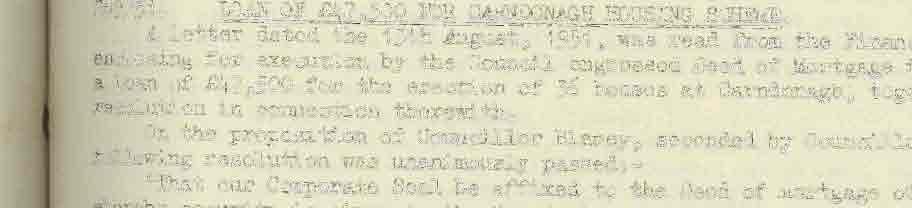 LOAN OF £42,500 FOR CARNDONAGH HOUSING SCHEME.
A letter dated the 13th August, 1951, was read from the Financ
enclosing for execution by the Council engrossed Deed of Mortgage
a loan of £42,500 for the erection of 36 houses at Carndonagh, toge
resolution in connection therewith.
On the proposition of Councillor Blaney, seconded by Councillo
following resolution was unanimously passed:-
"That our Corporate Seal be affixed to the Deed of Mortgage